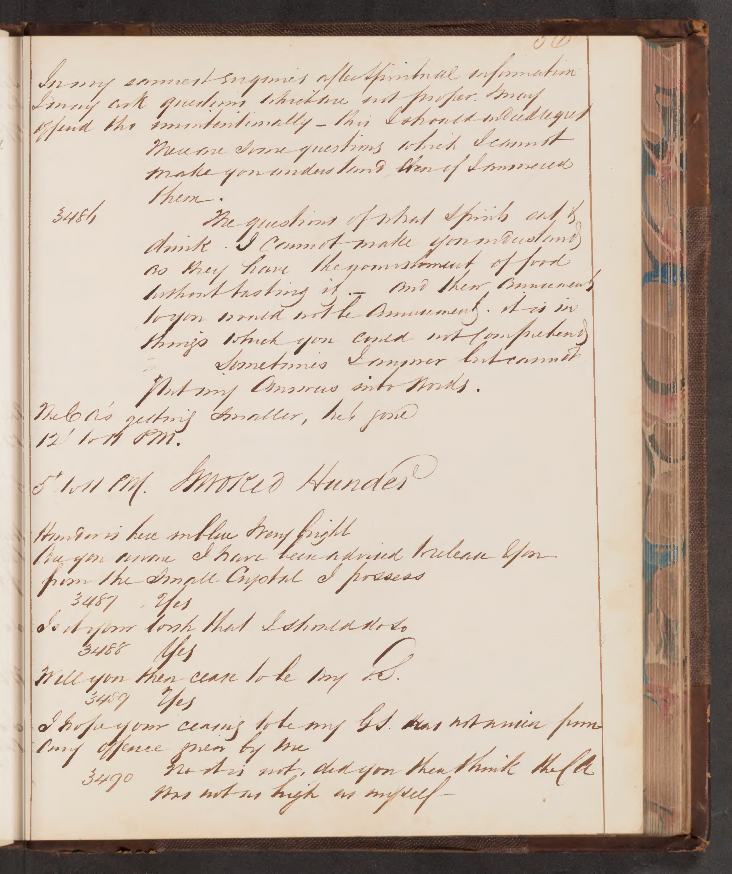 In my earnest enquiries after Spiritual information
I may ask questions which are not proper. may
offend the unintentionally - this I should indeed regret
There are some questions which I cannot
make you understand, even if I answered
them.
3486 The questions of what Spirits eat &
drink. I cannot make you understand
as they have the nourishment of food
without tasting it. - and their amusements
to you would not be amusement. it is in
things which you could not comprehend
Sometimes I answer but cannot
Put my answers into Words.
The CA's getting smaller, he's gone
12 to 11 PM.
5 to 11 PM. Invoked Hunder
Hunder is here in blue Very bright
Are you aware I have been advised to release you
from the Small Crystal I possess
3487 Yes
Is it your wish that I should do so
3488 Yes
Will you then cease to be my G.S.
3489 Yes
I hope your ceasing to be my G.S. has not arisen from
any offence given by me
3490 No it is not, did you then think the CA
was not as high as myself -